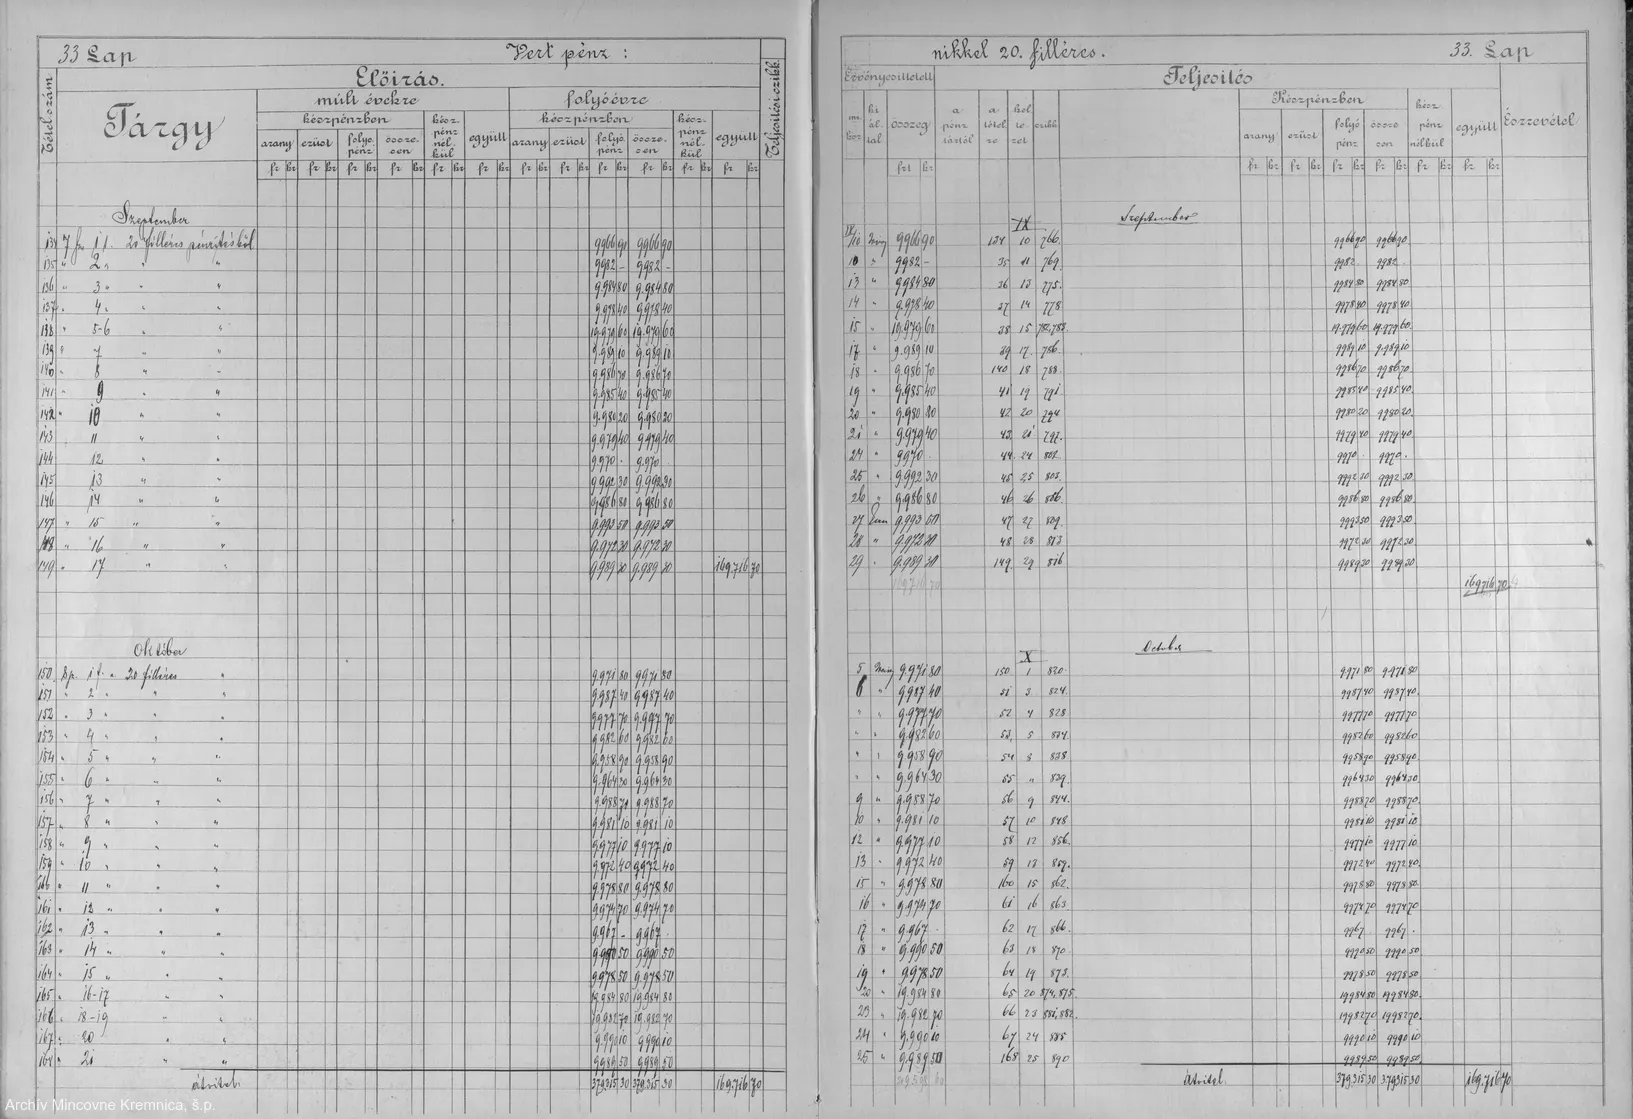 33 Lap Vert pénz :
Tételszám
Előirás.
Teljesitési czikk.
Tárgy
múlt évekre
folyóévre
készpénzben
kész pénz nélkül
együtt
készpénzben
kész pénz nélkül
együtt
arany ezüst folyó pénz össze-sen
arany ezüst folyó pénz össze-sen
fr kr fr kr fr kr fr kr fr kr fr kr fr kr fr kr fr kr fr kr fr kr fr kr
Szeptember
134 20 filléres 9966 90 9966 90
135 " 2 " " " 9982 – 9982 –
136 " 3 " " " 9.984 80 9.984 80
137 " 4 " " " 9.978 40 9.978 40
138 " 5-6 " " 19.979 60 19.979 60
139 " 7 " " 9.989 10 9.989 10
140 " 8 " " 9.986 70 9.986 70
141 " 9 " " 9.985 40 9.985 40
142 " 10 " " 9.980 20 9.980 20
143 " 11 " " 9.979 40 9.979 40
144 12 " " 9.970 · 9.970 ·
145 13 " " 9.992 30 9.992 30
146 " 14 " " 9.986 80 9.986 80
147 " 15 " " 9.993 50 9.993 50
148 " 16 " " 9.972 30 9.972 30
149 " 17 " " 9.989 30 9.989 30 169.716 70
Október
150 1 " 20 filléres " 9.971 80 9.971 80
151 " 2 " " " 9.987 40 9.987 40
152 " 3 " " " 9.977 70 9.977 70
153 " 4 " " " 9.982 60 9.982 60
154 " 5 " " " 9.958 90 9.958 90
155 " 6 " " " 9.964 30 9.964 30
156 " 7 " " " 9.988 70 9.988 70
157 " 8 " " " 9.981 10 9.981 10
158 " 9 " " " 9.977 10 9.977 10
159 " 10 " " " 9.972 40 9.972 40
160 " 11 " " " 9.978 80 9.978 80
161 " 12 " " " 9.974 70 9.974 70
162 " 13 " " " 9.967 – 9.967 ·
163 " 14 " " " 9.990 50 9.990 50
164 " 15 " " " 9.978 50 9.978 50
165 " 16-17 " " 19.984 80 19.984 80
166 " 18-19 " " 19.982 70 19.982 70
167 " 20 " " 9.990 10 9.990 10
21 " " 9.989 50 9.989 50
átvitel. 379.315 30 379.315 30 169.716 70
nikkel 20. filléres. 33. Lap
Érvényesittetett
Teljesités
összeg
a pénz tártól
a tétel re
czikk
Készpénzben
kész pénz nélkül
együtt
Észrevétel
arany ezüst folyó pénz össze sen
frt kr fr kr fr kr fr kr fr kr fr kr fr kr
IX
Szeptember
9966 90 134 10 766. 9966 90 9966 90
10 " 9982 – 35 11 769. 9982 · 9982 ·
13 " 9.984 80 36 13 775. 9984 80 9984 80
14 " 9.978 40 37 14 778 9978 40 9978 40
15 " 19.979 60 38 15 19.979 60 19.979 60
17 " 9.989 10 39 17. 786. 9989 10 9.989 10
18 " 9.986 70 140 18 788. 9986 70 9986 70
19 " 9.985 40 41 19 791 9985 40 9985 40
20 " 9.980 20 42 20 794 9980 20 9980 20
21 " 9.979 40 43 21 797. 9979 40 9979 40
24 " 9970 · 44 24 9970 · 9970 ·
25 " 9.992 30 45 25 9992 30 9992 30
26 " 9.986 80 46 26 9986 80 9986 80
27 9.993 50 47 27 809. 9993 50 9993 50
28 " 9.972 30 48 28 813 9972 30 9972 30
29 9.989 30 149 29 816 9989 30 9989 30
169716 70 169716 70
X
October
5 9.971 80 150 1 820. 9971 80 9971 80
6 " 9.987 40 51 3 824. 9987 40 9987 40
" " 9.977 70 52 4 828. 9977 70 9977 70
" " 9.982 60 53 5 834 9982 60 9982 60
" " 9.958 90 54 8 838 9958 90 9958 90
" " 9.964 30 55 " 839. 9964 30 9964 30
9 " 9.988 70 56 9 844. 9988 70 9988 70
10 " 9.981 10 57 10 848 9981 10 9981 10
12 " 9.977 10 58 12 856. 9977 10 9977 10
13 " 9.972 40 59 13 859. 9972 40 9972 40
15 " 9.978 80 160 15 862. 9978 80 9978 80
16 " 9.974 70 61 16 863 9974 70 9974 70
17 " 9.967 · 62 17 866. 9967 9967 ·
18 " 9.990 50 63 18 870. 9990 50 9990 50
19 " 9.978 50 64 19 873. 9978 50 9978 50
20 " 19.984 80 65 20 874, 875. 19984 80 19984 80
23 " 19.982 70 66 23 881, 882. 19982 70 19982 70
24 " 9.990 10 67 24 885 9990 10 9990 10
25 " 9.989 50 168 25 890 9989 50 9989 50
átvitel. 379315 30 379315 30 169.716 70
Archív Mincovne Kremnica, š.p.